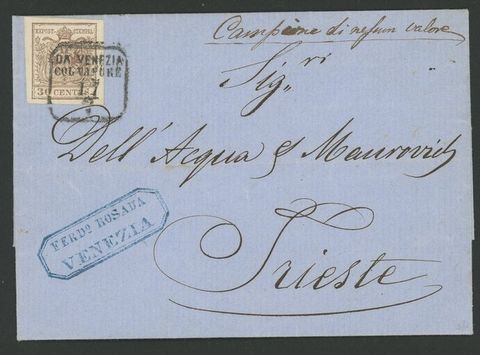 KKPOST-STEMPEL
30 CENTES
DA VENEZIA
COL VAPORE
17
Campione di nessun valore
Sig.ri
Dell'Acqua & Maurovich
Trieste
FERDO ROSADA
VENEZIA